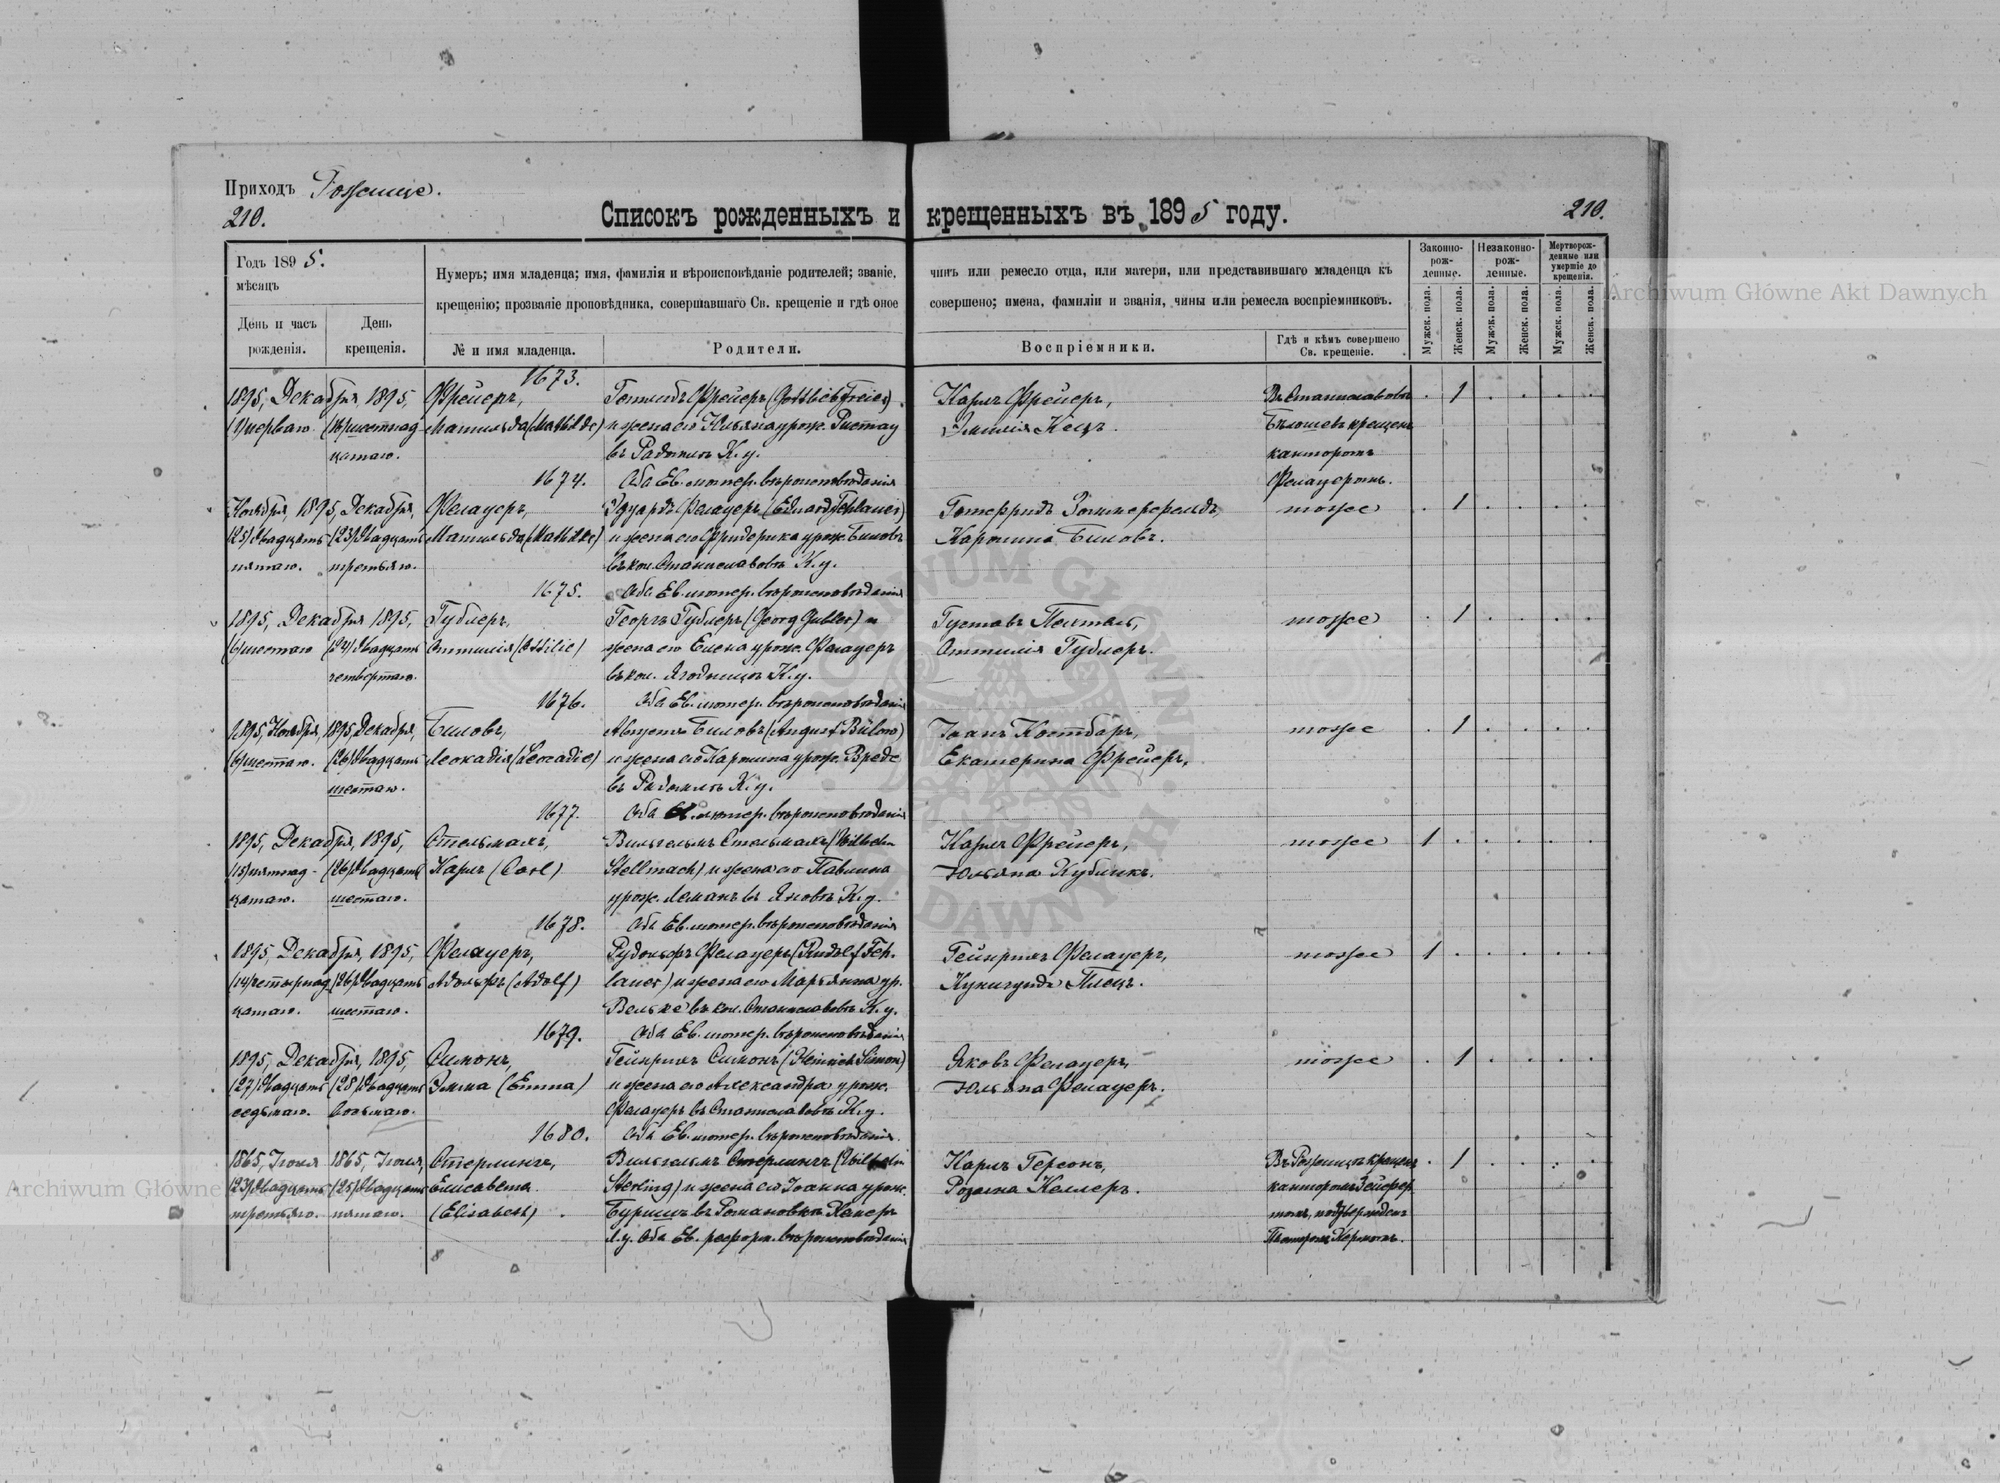 Приходъ Рожище.
210.
210.
Списокъ рожденныхъ и крещенныхъ въ 1895 году.
Годъ 1895.
мѣсяцъ
День и часъ рожденія.
День крещенія.
Нумеръ; имя младенца; имя, фамилія и вѣроисповѣданіе родителей; званіе, чинъ или ремесло отца, или матери, или представившаго младенца къ
крещенію; прозваніе проповѣдника, совершавшаго Св. крещеніе и гдѣ оное совершено; имена, фамиліи и званія, чины или ремесла воспріемниковъ.
№ и имя младенца.
Родители.
Воспріемники.
Гдѣ и кѣмъ совершено Св. крещеніе.
Законно-рож-денные.
Незаконно-рож-денные.
Мертворож-денные или умершіе до крещенія.
Мужск. пола.
Женск. пола.
Мужск. пола.
Женск. пола.
Мужск. пола.
Женск. пола.
1673.
1895, Декабря, 1895, Фрейеръ, Готлибъ Фрейеръ (Gottlieb Freier) Карлъ Фрейеръ, Въ Станиславовъ 1
(1) перваго (16) шестнад- Матильда (Mathilde) и жена его Юльяна урож. Эмилія крещенъ
цатаго. въ К. у. канторомъ
1674. Оба Ев. лютер. вѣроисповѣданія Фелауеромъ.
Ноября, 1895, Декабря, Фелауеръ, Эдуардъ Фелауеръ (Eduard Fehlauer) Готфридъ тоже 1
(25) двадцать (23) двадцать Матильда (Mathilde) и жена его Фридерика урож. Биловъ Каролина Биловъ.
пятаго. третьяго. въ кол. Станиславовъ К. у.
1675. Оба Ев. лютер. вѣроисповѣданія
1895, Декабря 1895, Гублеръ, Георгъ Гублеръ (Georg Gubler) и Густавъ тоже 1
(6) шестаго (24) двадцать Оттилія (Ottilie) жена его Елена урож. Фелауеръ Оттилія Гублеръ.
четвертаго. въ кол. К. у.
1676. Оба Ев. лютер. вѣроисповѣданія
1895, Ноября, 1895 Декабря, Биловъ, Августъ Биловъ (August Bülow) Іоанъ тоже 1
(6) шестаго. (26) двадцать Леокадія (Leocadie) и жена его Каролина урож. Вреде Екатерина Фрейеръ.
шестаго. въ К. у.
1677. Оба Ев. лютер. вѣроисповѣданія
1895, Декабря, 1895, Стельмахъ, Вильгельмъ Стельмахъ (Wilhelm Карлъ Фрейеръ, тоже 1
(15) пятнад- (26) двадцать Карлъ (Carl) Stellmach) и жена его Павлина Юльяна Кубликъ.
цатаго. шестаго. урож. Леманъ въ Яновъ К. у.
1678. Оба Ев. лютер. вѣроисповѣданія
1895, Декабря, 1895, Фелауеръ, Рудольфъ Фелауеръ (Rudolf Feh- Гейнрихъ Фелауеръ, тоже 1
(14) четырнад- (26) двадцать Адольфъ (Adolf) lauer) и жена его Марьянна ур. Кунигунда
цатаго. шестаго. Вельке въ кол. Станиславовъ К. у.
1679. Оба Ев. лютер. вѣроисповѣданія
1895, Декабря, 1895, Симонъ, Гейнрихъ Симонъ (Heinrich Simon) Яковъ Фелауеръ, тоже 1
(27) двадцать (28) двадцать Эмма (Emma) и жена его Александра урож. Юльяна Фелауеръ.
седьмаго. восьмаго. Фелауеръ въ Станиславовъ К. у.
1680. Оба Ев. лютер. вѣроисповѣданія.
1865, Іюля 1865, Іюля, Стерлингъ, Вильгельмъ Стерлингъ (Wilhelm Карлъ Герсонъ, Въ Рожищъ крещенъ 1
(23) двадцать (25) двадцать Елисавета Sterling) и жена его Іоанна урож. Розина Келлеръ. канторомъ
третьяго. пятаго. (Elisabeth) въ Романовкъ
Л. у. Оба Ев. реформ. вѣроисповѣданія Пасторомъ
Archiwum Główne Akt Dawnych